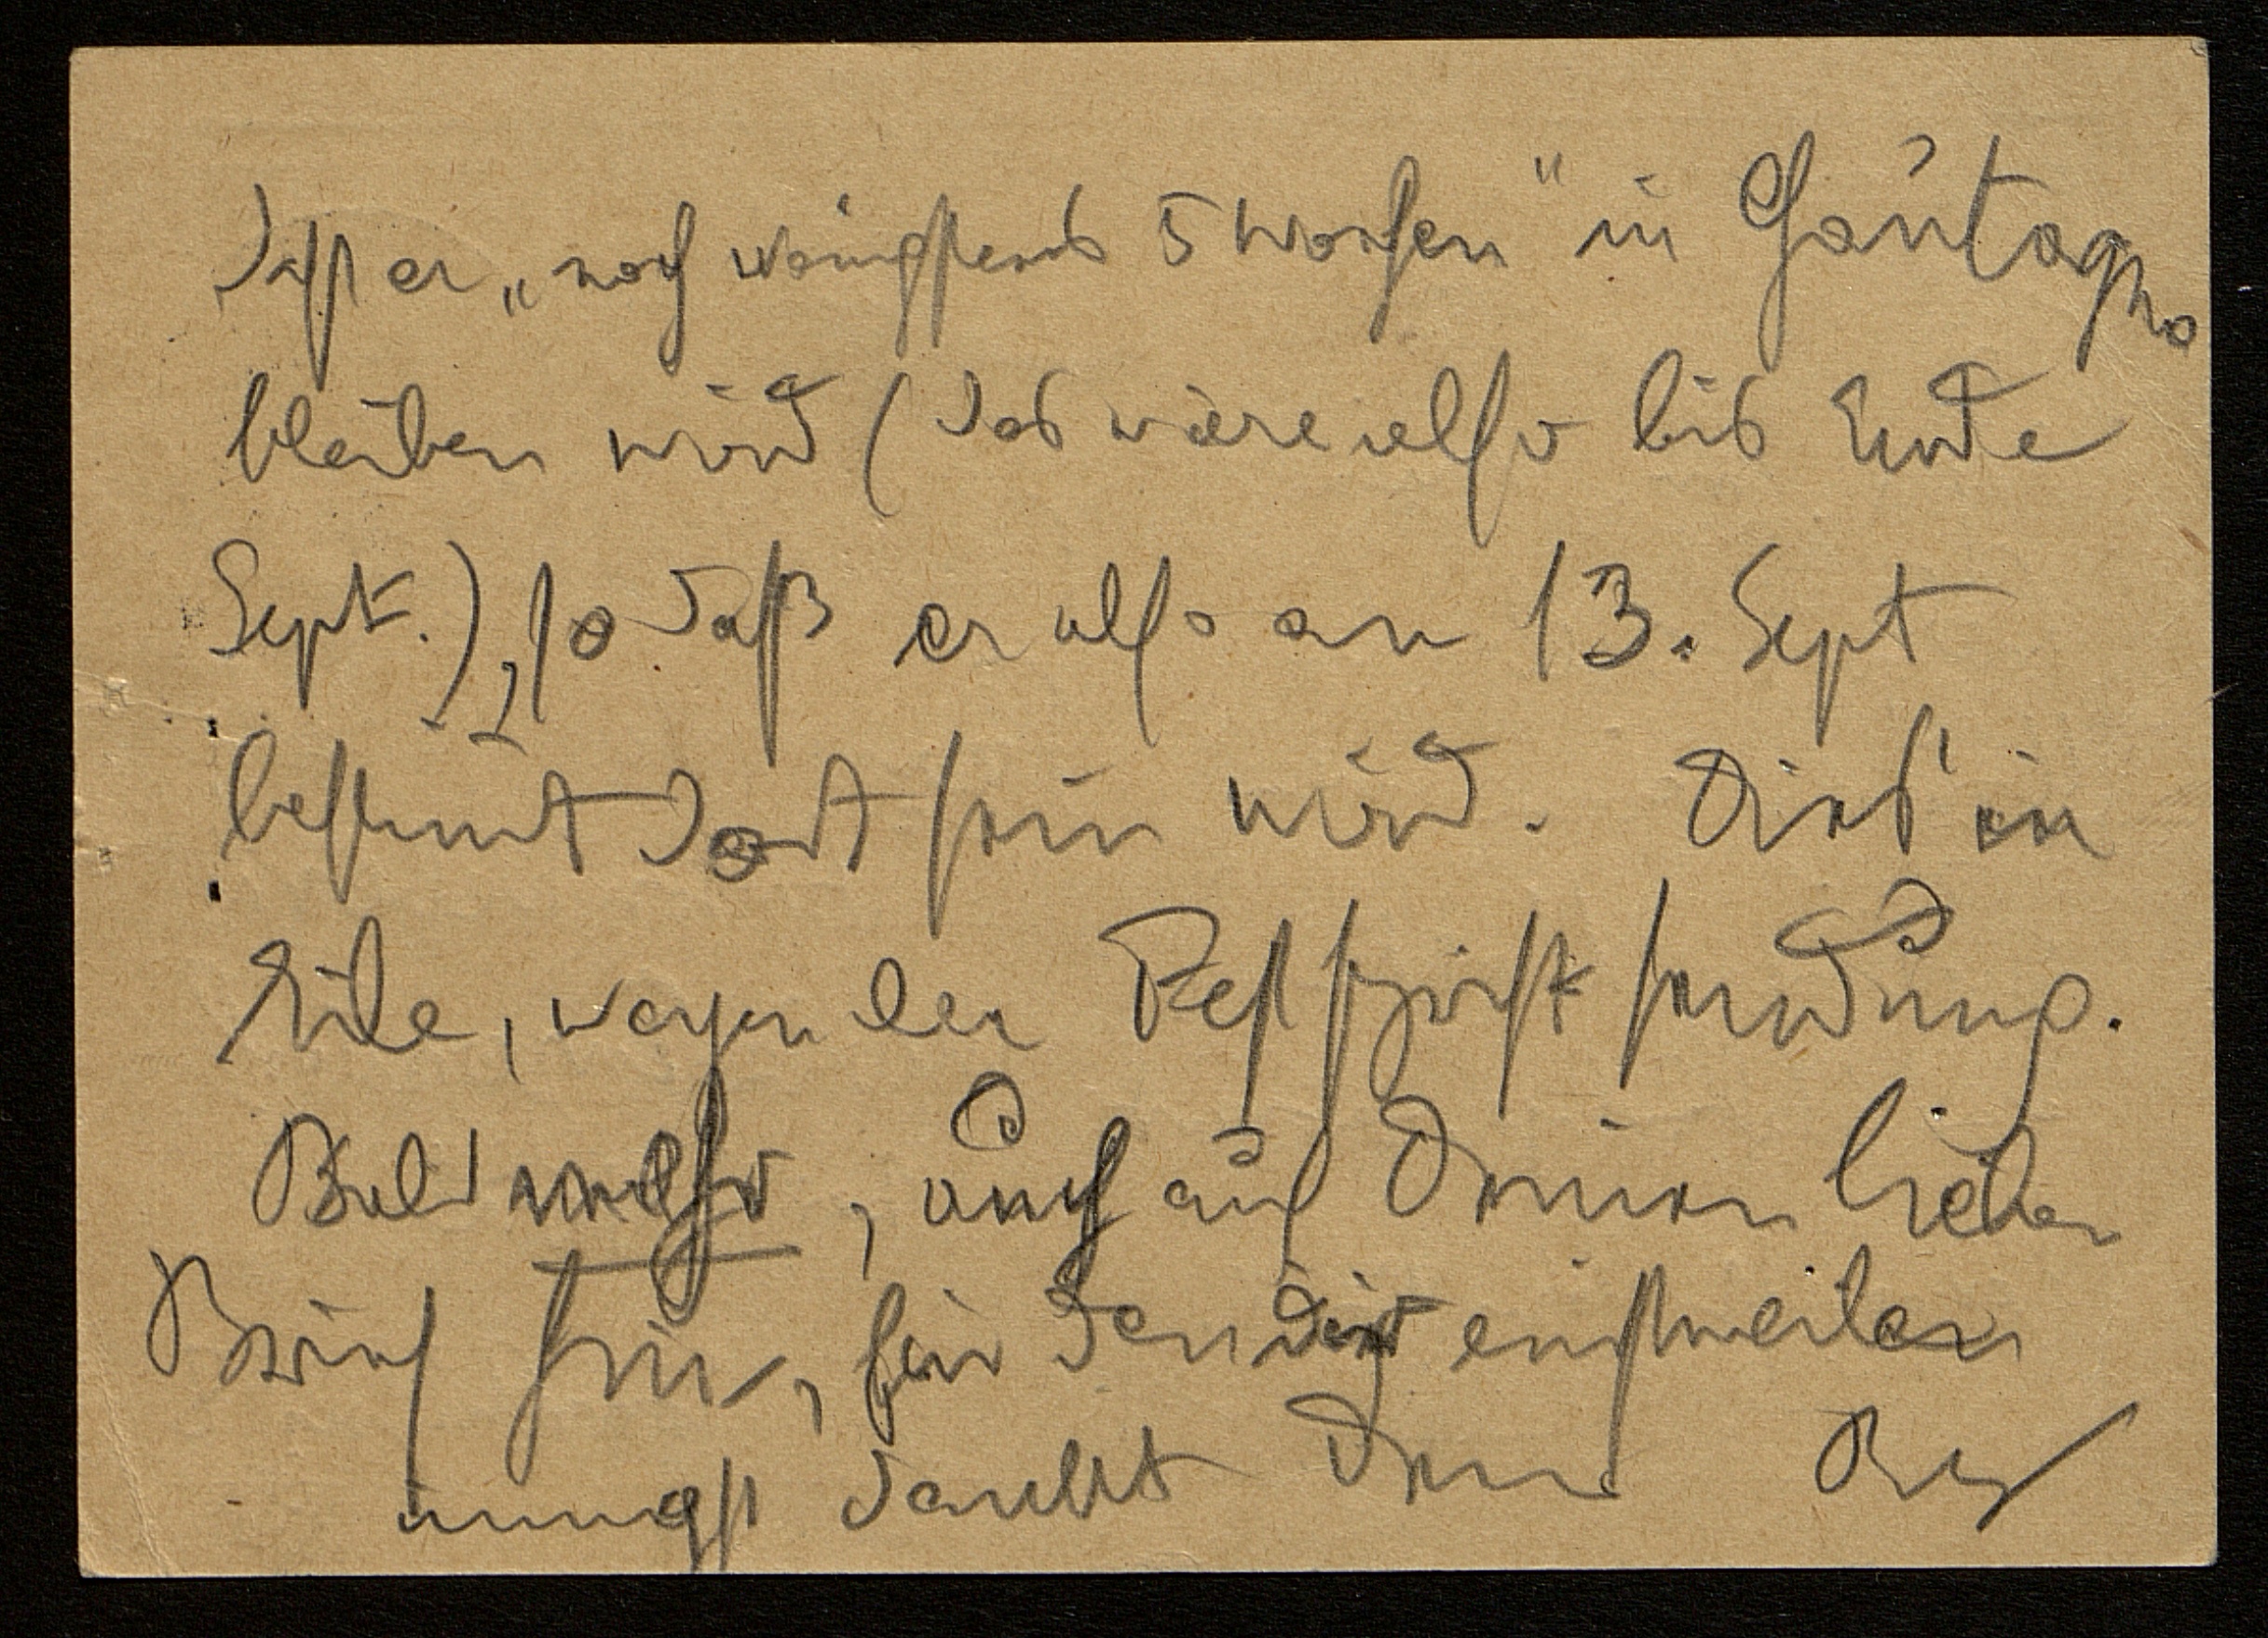 dass er „noch wenigstens 5 Wochen" in Chantagno
bleiben wird (das wäre also bis Ende
Sept.), so daß er also am 13. Sept
bestimt dort sein wird. Dies in
Eile, wegen der Festschriftsendung.
Bald mehr, auch auf Deinen lieben
Brief hin, für den Dir einstweilen
innigst dankt Dein